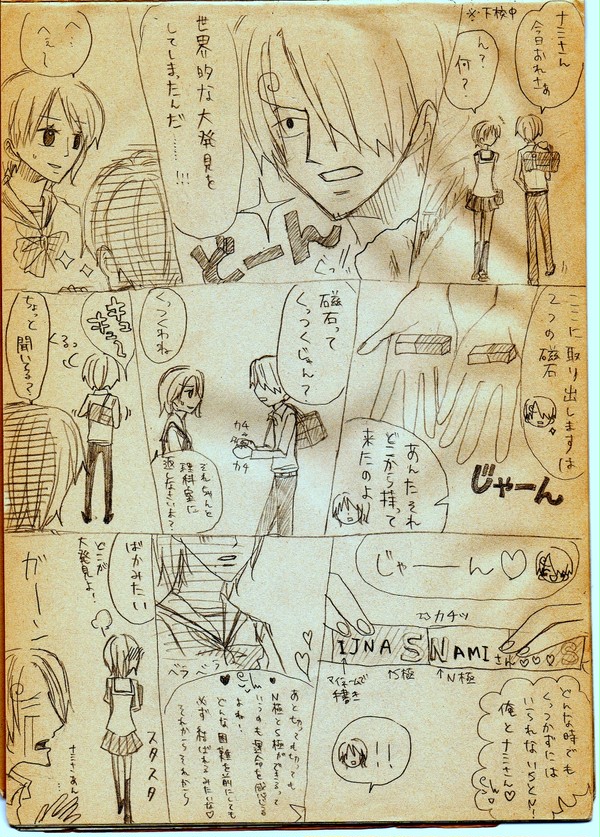 ※下校中
ナミさん
今日おれさぁ
ん？
何？
世界的な大発見を
してしまったんだ
……!!!
どーん
ぐっ!!
へ…
へぇ〜
ここに取り出しますは
2つの磁石
じゃーん
あんたそれ
どこから持って
来たのよ
磁石って
くっつくじゃん？
カチ
カチ
くっつくわね
それちゃんと
理科室に
返しなさいよ？
キュキュ
くるっ
ちょっと聞いてる？
じゃーん♡
カチッ
IJNA S NAMI さん♡♡♡ S
↑マイネームで
手書き
↑S極
↑N極
!!
どんな時でも
くっつかずには
いられないSとN!
俺とナミさん♡
あと切っても切っても
N極とS極ができるって
いうのも運命を感じる
よね!
どんな困難を前にしても
必ず結ばれるみたいな♡
それからそれから
ベラベラ
ばかみたい
どこが
大発見よ!
スタスタ
ガーン
ナミさぁん